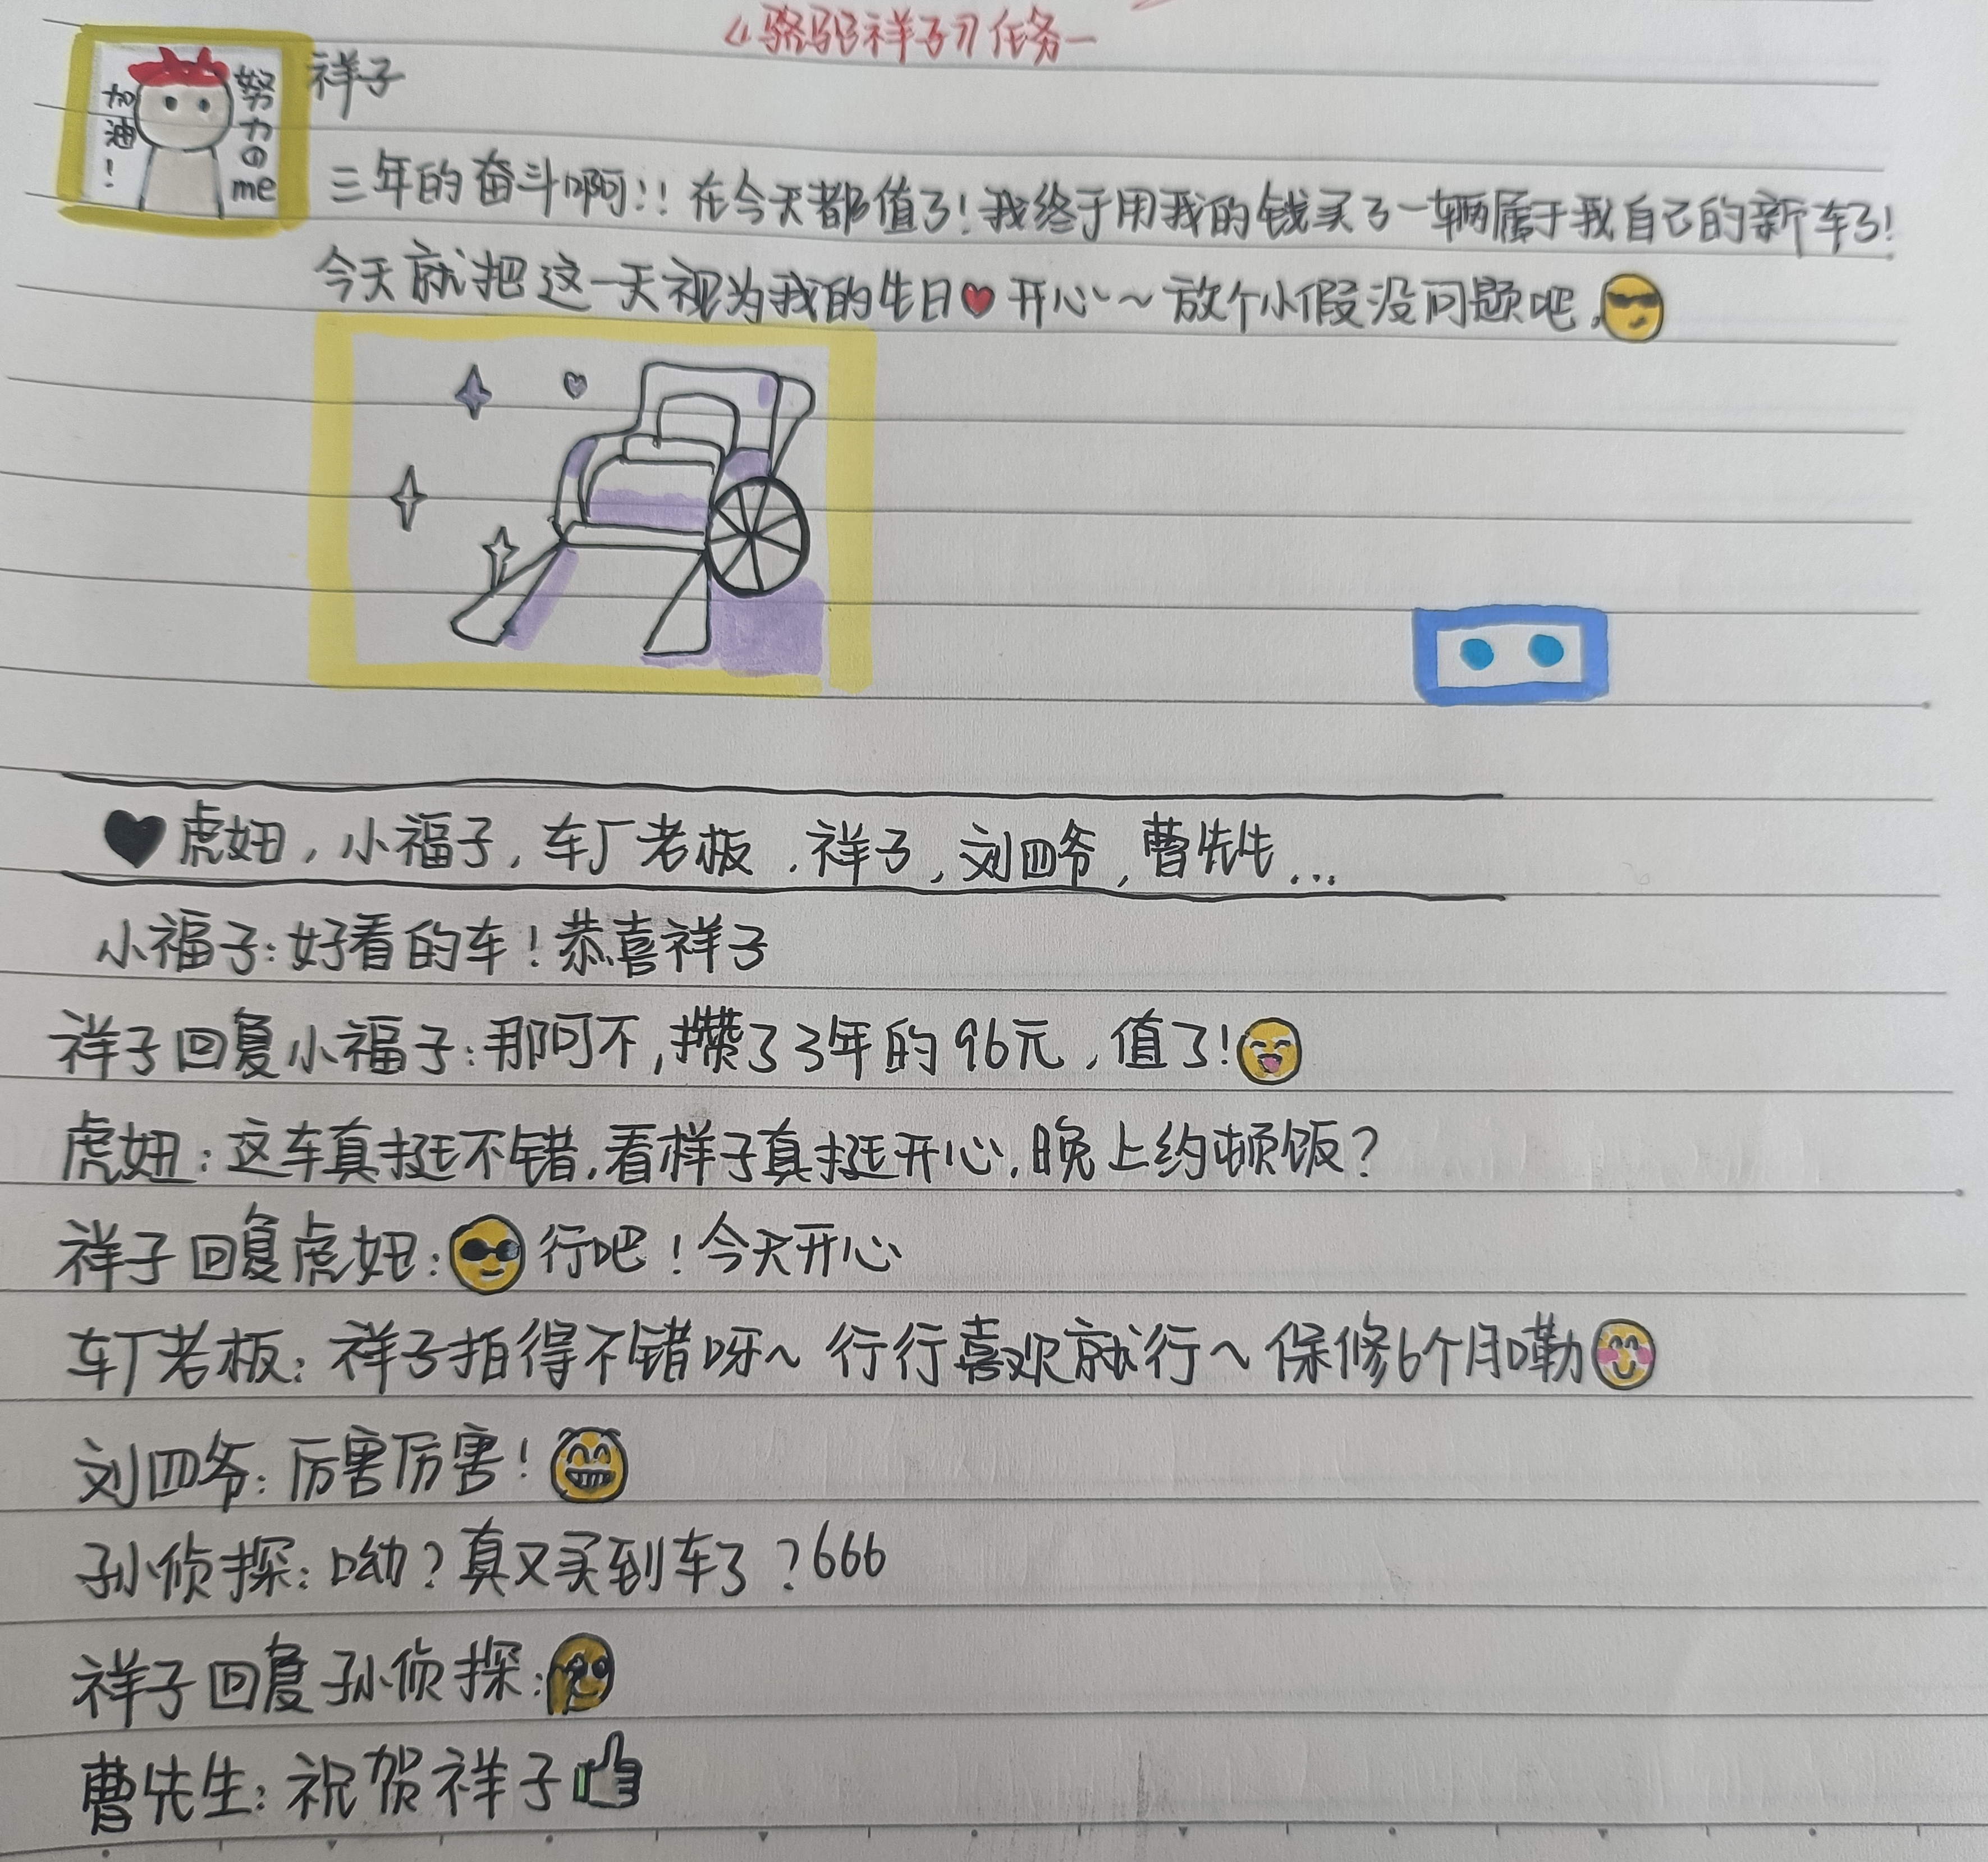 《骆驼祥子》任务一
加油!
努力のme
祥子
三年的奋斗啊!!在今天都值了!我终于用我的钱买了一辆属于我自己的新车了!
今天就把这一天视为我的生日❤开心~~放个小假没问题吧.😎
♥虎妞,小福子,车厂老板,祥子,刘四爷,曹先生...
小福子:好看的车!恭喜祥子
祥子回复小福子:那可不,攒了3年的96元,值了!😄
虎妞:这车真挺不错,看样子真挺开心,晚上约顿饭?
祥子回复虎妞:😎行吧!今天开心
车厂老板:祥子拍得不错呀~行行喜欢就行~保修6个月嘞😊
刘四爷:厉害厉害!😁
孙侦探:呦?真又买到车了?666
祥子回复孙侦探:
曹先生:祝贺祥子👍